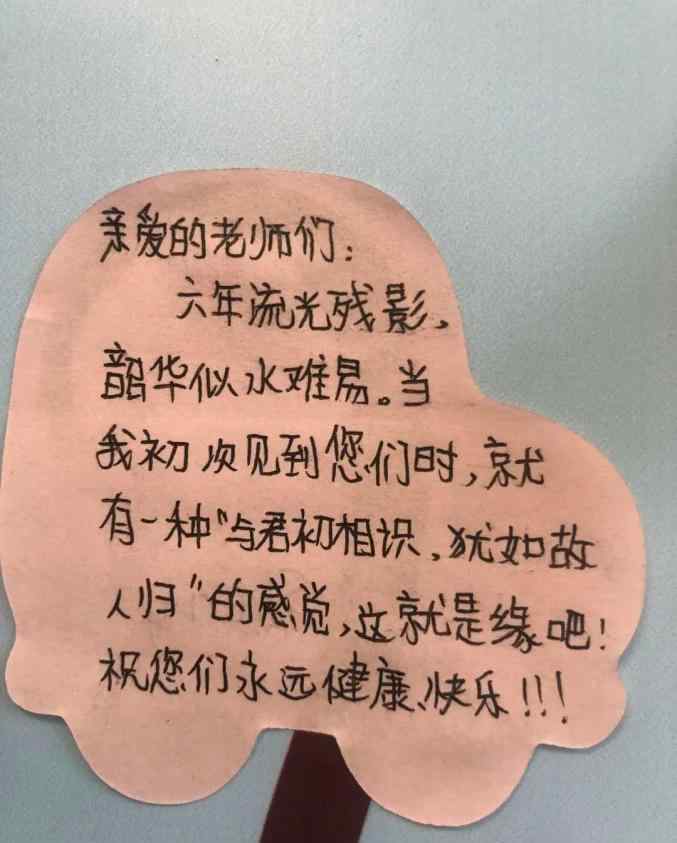 亲爱的老师们：
六年流光残影，
韶华似水难易。当
我初次见到您们时，就
有一种“与君初相识，犹如故
人归”的感觉，这就是缘吧！
祝您们永远健康、快乐！！！